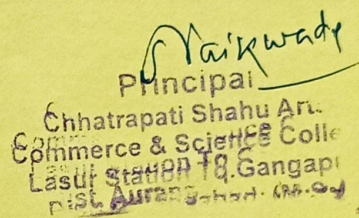 Naikwade
Principal
Chhatrapati Shahu Art
Commerce & Science Colle
Lasur Station Tq.Gangap
Dist. Aurangabad. (M.S)